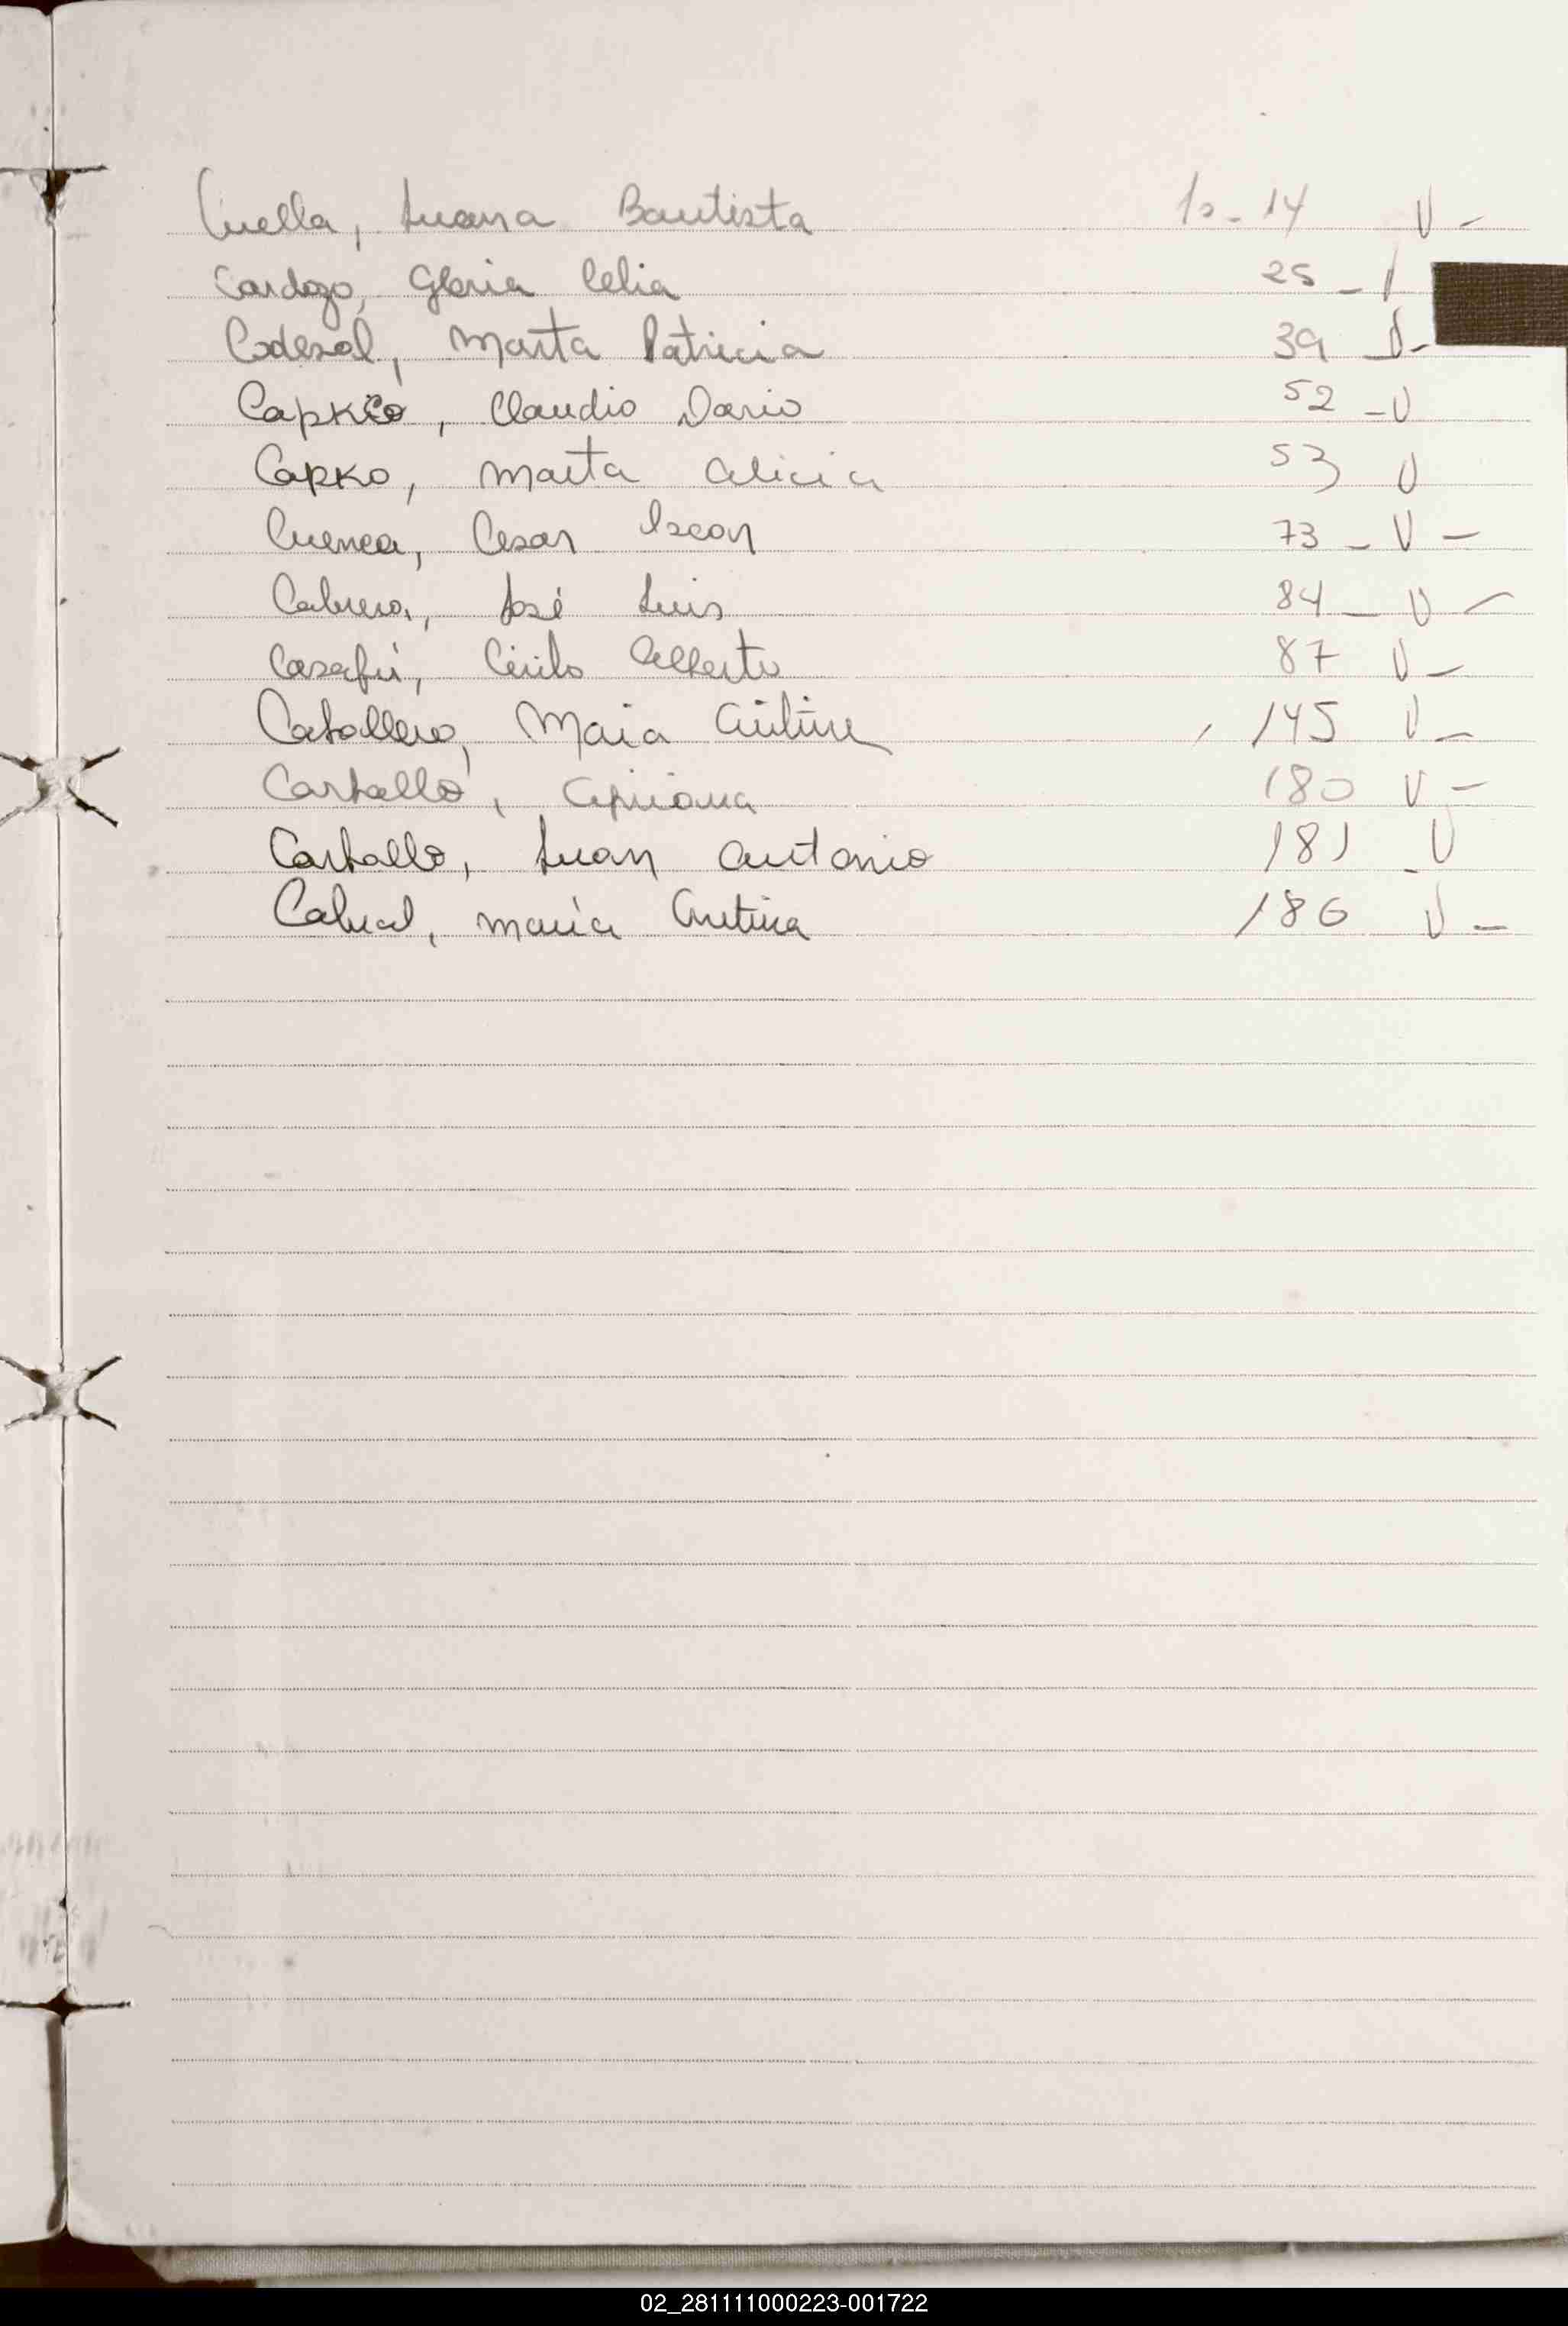 Cuella, Juana Bautista 1o - 14 V -
Cardozo, Gloria Celia 25 -
Codesal, Marta Patricia 39 - V -
Capko, Claudio Dario 52 - V
Capko, Marta Alicia 53 V
Cuenca, Cesar Oscar 73 - V -
Cabrera, José Luis 84 - V -
Casafú, Cirilo Alberto 87 V -
Caballero, Maria Cristina 145 V -
Carballo, Cipriana 180 V -
Carballo, Juan Antonio 181 - V
Cabral, María Cristina 186 V -
02_281111000223-001722